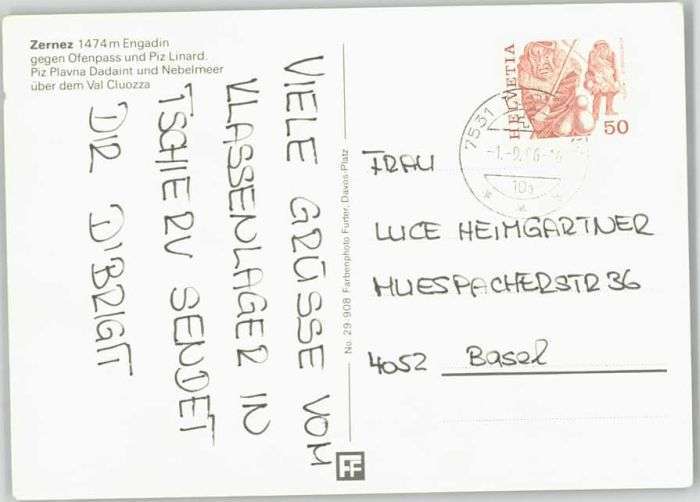 Zernez 1474 m Engadin
gegen Ofenpass und Piz Linard.
Piz Plavna Dadaint und Nebelmeer
über dem Val Cluozza
VIELE GRÜSSE VOM
KLASSENLAGER IN
TSCHIERV SENDET
DIR D'BRIGIT
No. 29-908 Farbenphoto Furter, Davos-Platz
FF
HELVETIA
50
7531
FRAU
LUCE HEIMGARTNER
MUESPACHERSTR 36
4052 Basel